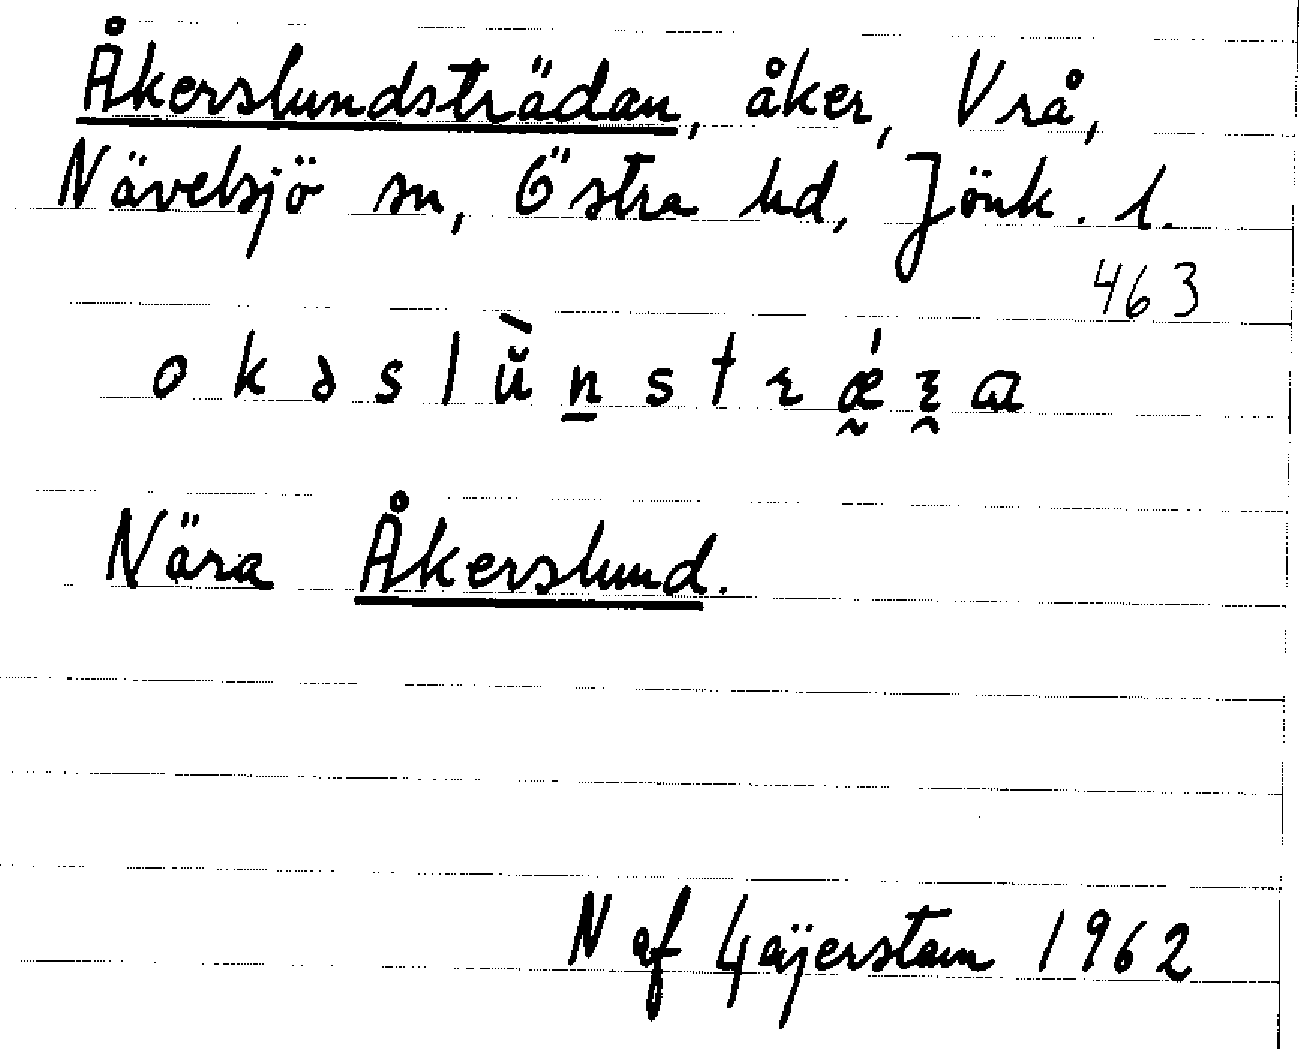 Åkerslundsträdan, åker, Vrå,
Nävelsjö sn, Östra hd, Jönk. l.
463
Nära Åkerslund.
N af Gäijerstam 1962